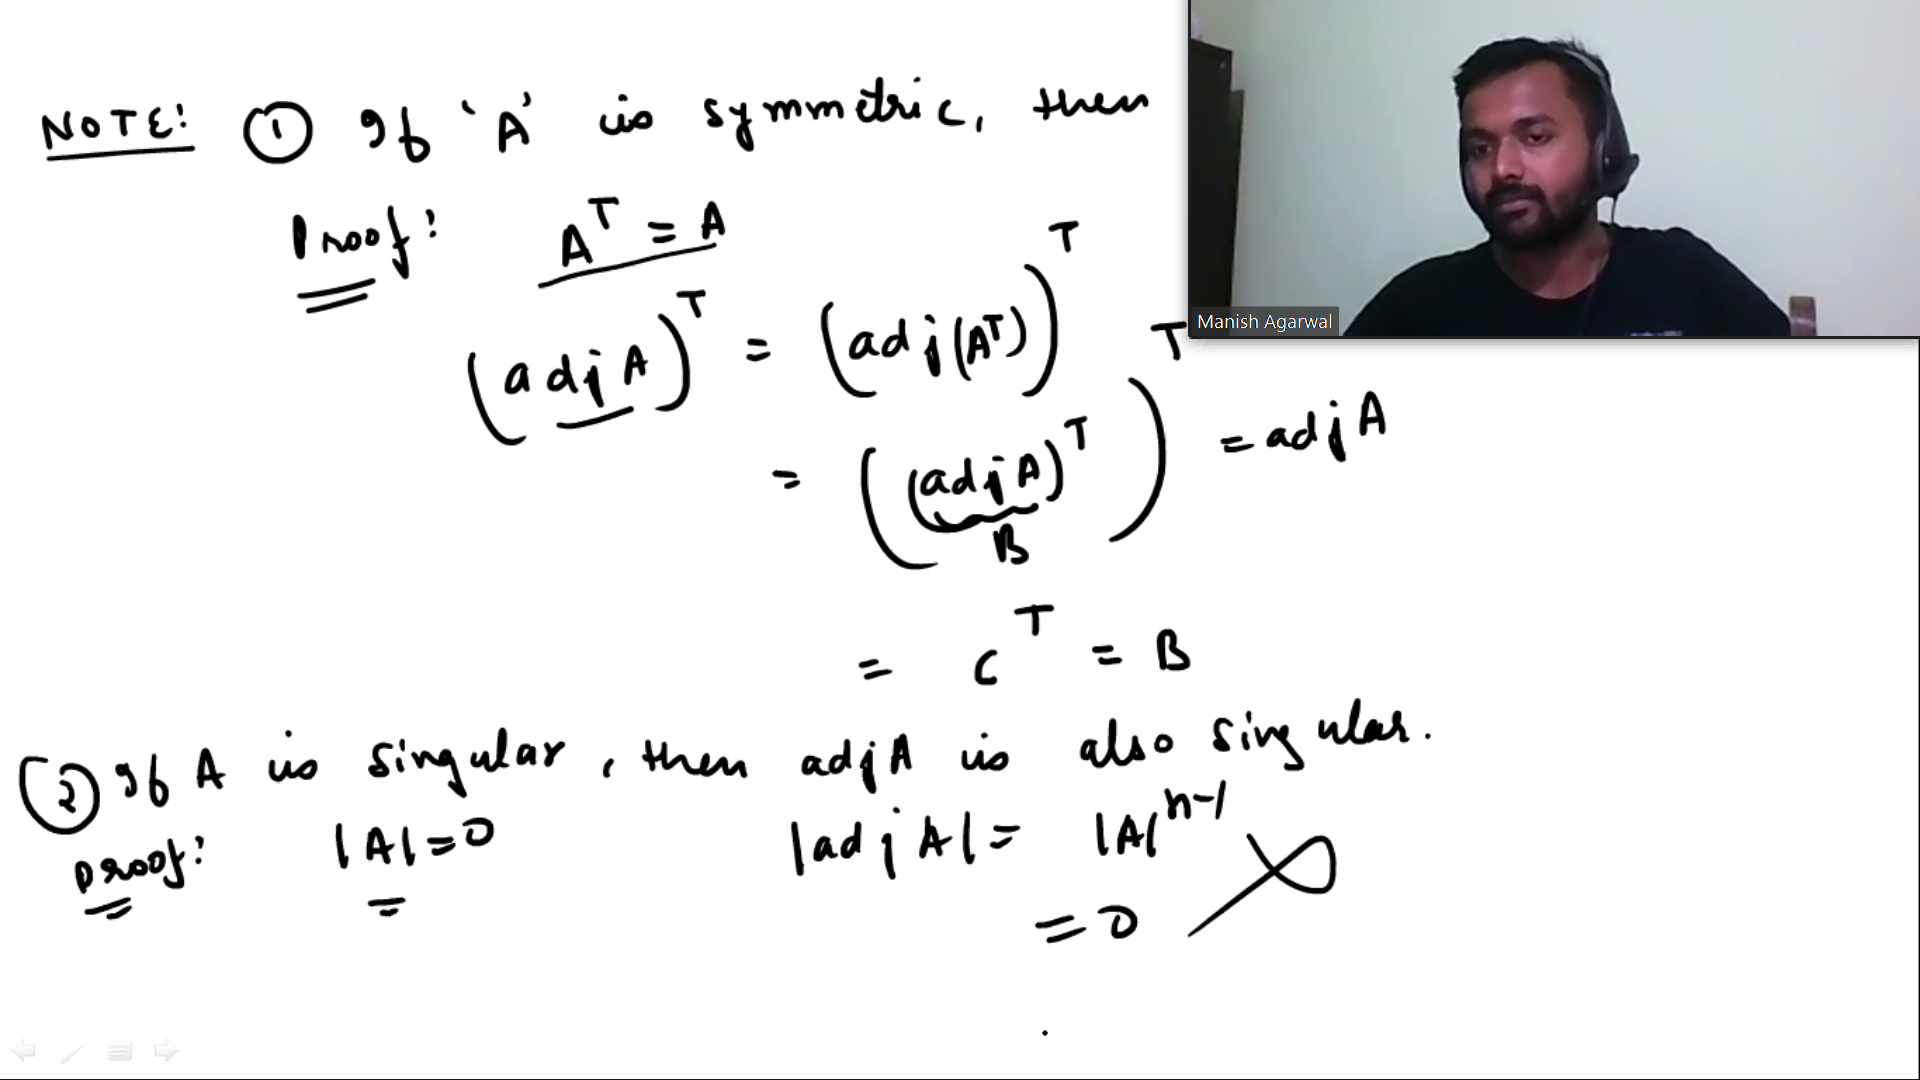 NOTE: ① If 'A' is symmetric, then
Proof: A^T = A
(adj A)^T = (adj(A^T))^T
= ((adj A)^T)^T = adj A
B
= C^T = B
② If A is singular, then adj A is also singular.
Proof: |A| = 0 |adj A| = |A|^{n-1}
= 0
Manish Agarwal